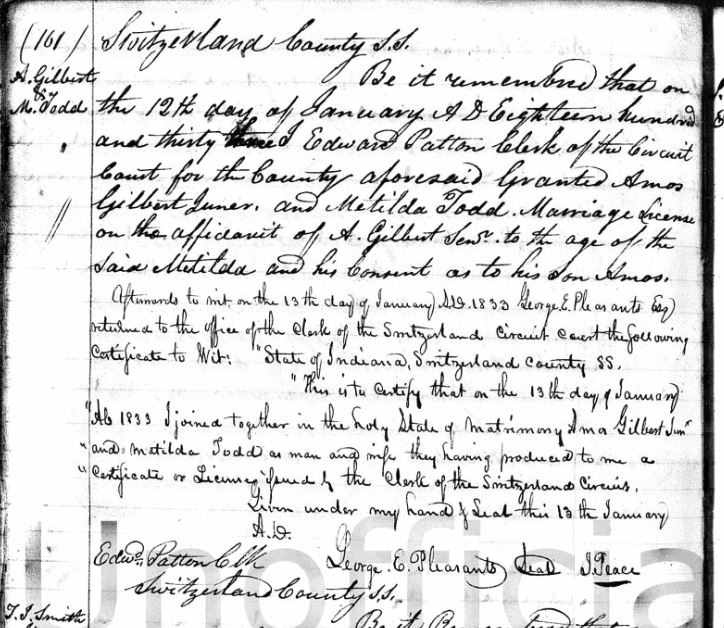 (161) Switzerland County S.S.
A. Gilbert
&
M. Todd
Be it remembred that on
the 12th day of January A D Eighteen hundred
and thirty three I Edward Patton Clerk of the Circuit
Court for the County aforesaid Granted Amos
Gilbert Juner. and Metilda Todd. Marriage License
on the affidavit of A. Gilbert Senr. to the age of the
Said Metilda and his Consent as to his son Amos.
Afterwards to wit on the 13th day of January A.D. 1833 George. E. Pleasants Esq
returned to the office of the Clerk of the Switzerland Circuit court the following
Certificate to Wit: "State of Indiana, Switzerland County SS.
"This is to certify that on the 13th day of January
"AD 1833 I joined together in the holy State of Matrimony Ama Gilbert Junr
"and Matilda Todd as man and wife they having produced to me a
"Certificate or License issued by the Clerk of the Switzerland Circuit.
Given under my hand & Seal this 13th January
A.D.
Edwd. Patton Clk George. E. Pleasants Seal J. Peace
Switzerland County S.S.
T. J. Smith
Be it
Unofficia